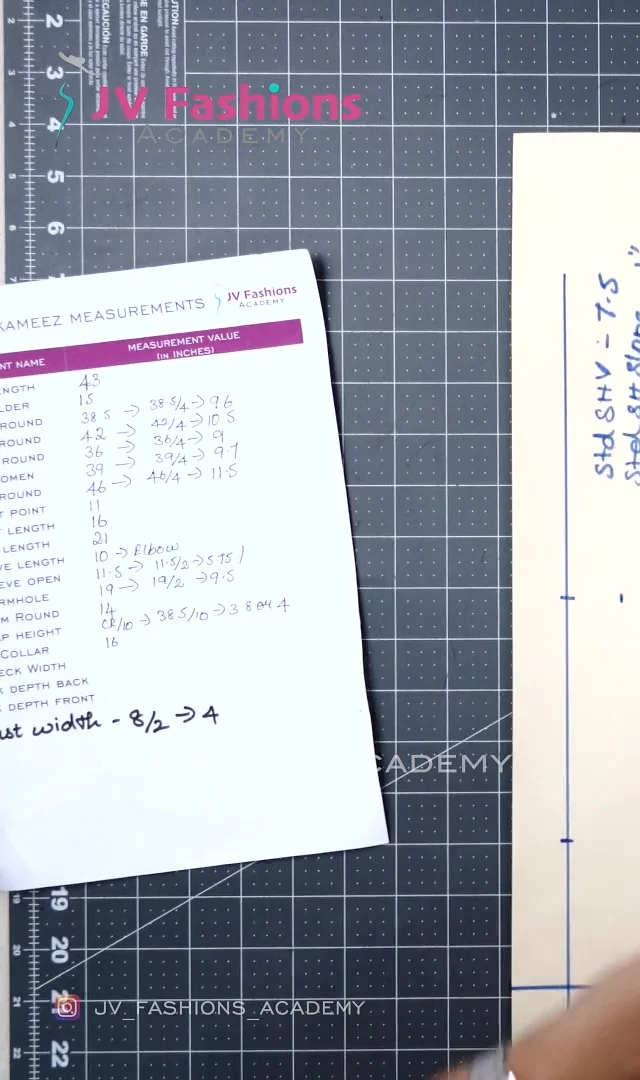 JV Fashions
ACADEMY
KAMEEZ MEASUREMENTS JV Fashions
ACADEMY
NT NAME MEASUREMENT VALUE
(IN INCHES)
ENGTH 43
LDER 15
ROUND 38.5 → 38.5/4 → 9.6
ROUND 42 → 42/4 → 10.5
ROUND 36 → 36/4 → 9
OMEN 39 → 39/4 → 9.7
ROUND 46 → 46/4 → 11.5
T POINT 11
LENGTH 16
LENGTH 21
VE LENGTH 10 → Elbow
EVE OPEN 11.5 → 11.5/2 →
RMHOLE 19 → 19/2 → 9.5
M ROUND 14
P HEIGHT CR/10 → 38.5/10 → 3.8 or 4
COLLAR 16
ECK WIDTH
K DEPTH BACK
DEPTH FRONT
ust width - 8/2 → 4
Std SHV - 7.5
Std SH Slope
ACADEMY
JV_FASHIONS_ACADEMY
2
3
4
5
6
19
20
22